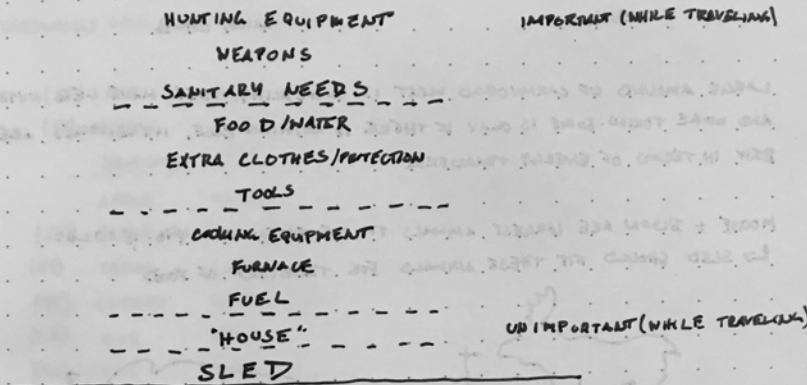 HUNTING EQUIPMENT IMPORTANT (WHILE TRAVELING)
WEAPONS
SANITARY NEEDS
FOOD/WATER
EXTRA CLOTHES/PROTECTION
TOOLS
COOKING EQUIPMENT
FURNACE
FUEL
"HOUSE" UNIMPORTANT (WHILE TRAVELING)
SLED